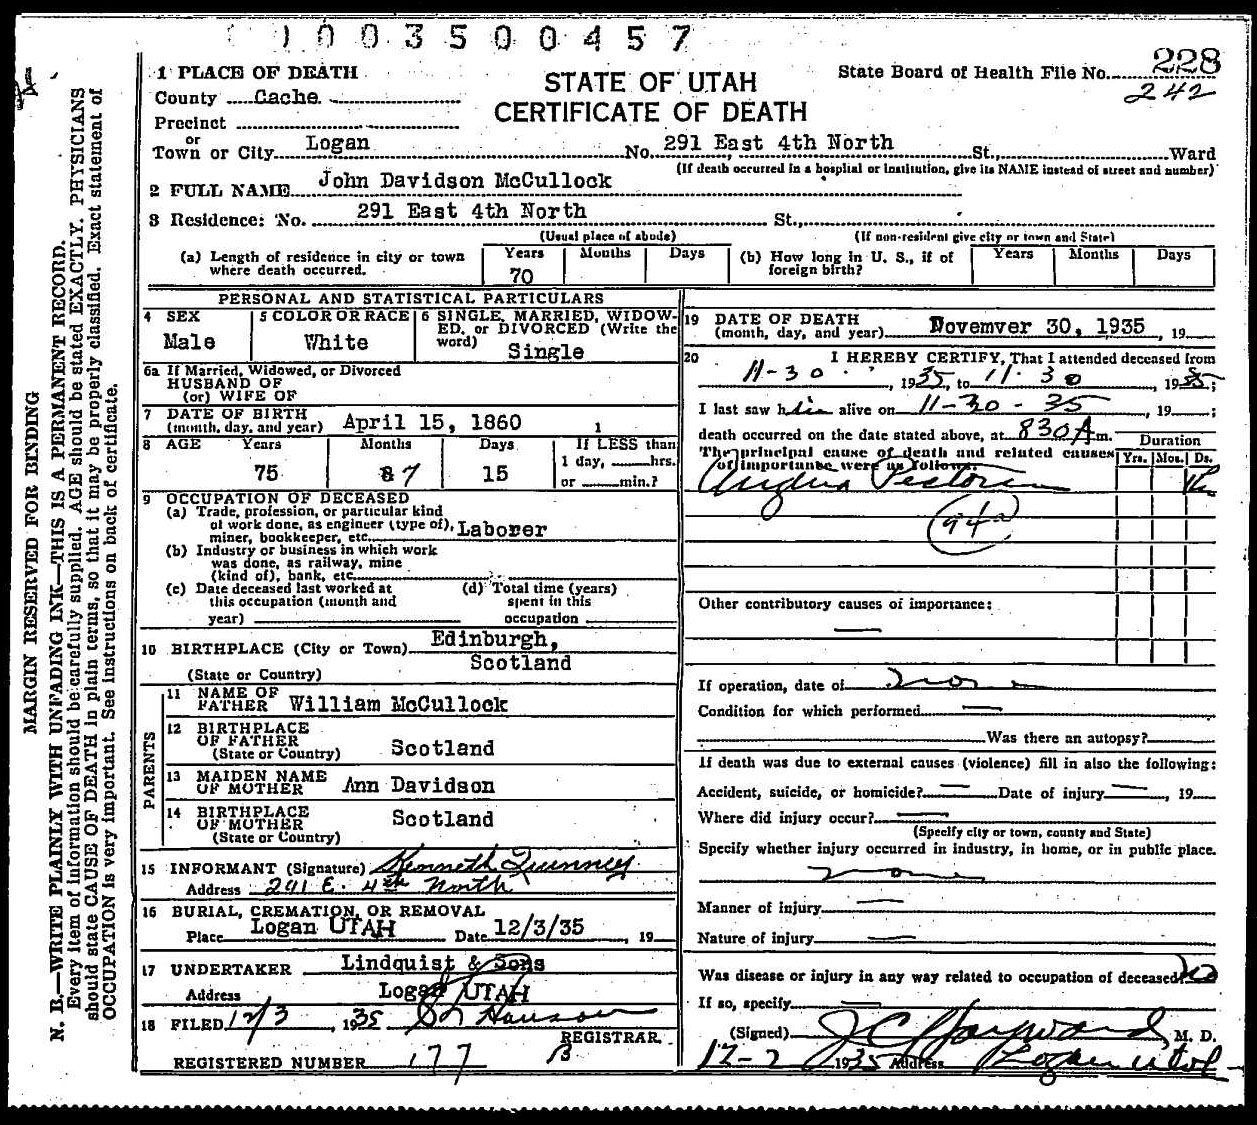 1003500457
1 PLACE OF DEATH
STATE OF UTAH
CERTIFICATE OF DEATH
State Board of Health File No. 228
242
County Cache
Precinct
or
Town or City Logan No. 291 East 4th North St., Ward
(If death occurred in a hospital or institution, give its NAME instead of street and number)
2 FULL NAME John Davidson McCullock
3 Residence: No. 291 East 4th North St.,
(Usual place of abode) (If non-resident give city or town and State)
(a) Length of residence in city or town where death occurred. Years 70 Months Days
(b) How long in U. S., if of foreign birth? Years Months Days
PERSONAL AND STATISTICAL PARTICULARS
4 SEX Male
5 COLOR OR RACE White
6 SINGLE, MARRIED, WIDOWED, or DIVORCED (Write the word) Single
6a If Married, Widowed, or Divorced
HUSBAND OF
(or) WIFE OF
7 DATE OF BIRTH
(month, day, and year) April 15, 1860 1
8 AGE Years Months Days If LESS than
75 87 15 1 day, hrs.
or min.?
9 OCCUPATION OF DECEASED
(a) Trade, profession, or particular kind
of work done, as engineer (type of),
miner, bookkeeper, etc. Laborer
(b) Industry or business in which work
was done, as railway, mine
(kind of), bank, etc.
(c) Date deceased last worked at
this occupation (month and
year)
(d) Total time (years)
spent in this
occupation
10 BIRTHPLACE (City or Town) Edinburgh,
Scotland
(State or Country)
PARENTS
11 NAME OF
FATHER William McCullock
12 BIRTHPLACE
OF FATHER
(State or Country) Scotland
13 MAIDEN NAME
OF MOTHER Ann Davidson
14 BIRTHPLACE
OF MOTHER
(State or Country) Scotland
15 INFORMANT (Signature) Kenneth Quinney
Address 241 E. 4th North
16 BURIAL, CREMATION, OR REMOVAL
Place Logan UTAH Date 12/3/35, 19
17 UNDERTAKER Lindquist & Sons
Address Logan UTAH
18 FILED 12/3, 1935
REGISTRAR.
REGISTERED NUMBER 177
19 DATE OF DEATH
(month, day, and year) Novemver 30, 1935, 19
20 I HEREBY CERTIFY, That I attended deceased from
11-30, 1935, to 11-30, 1935;
I last saw him alive on 11-30-35, 19;
death occurred on the date stated above, at 830 A m.
The principal cause of death and related causes
of importance were as follows:
Duration
Yrs. Mos. Ds.
Angina Pectoris
94a
Other contributory causes of importance:
If operation, date of none
Condition for which performed
Was there an autopsy?
If death was due to external causes (violence) fill in also the following:
Accident, suicide, or homicide? Date of injury, 19
Where did injury occur?
(Specify city or town, county and State)
Specify whether injury occurred in industry, in home, or in public place.
none
Manner of injury
Nature of injury
Was disease or injury in any way related to occupation of deceased? no
If so, specify
(Signed) J C Hayward, M. D.
12-2 1935 Address Logan Utah
MARGIN RESERVED FOR BINDING
N. B.—WRITE PLAINLY WITH UNFADING INK—THIS IS A PERMANENT RECORD.
Every item of information should be carefully supplied. AGE should be stated EXACTLY. PHYSICIANS
should state CAUSE OF DEATH in plain terms, so that it may be properly classified. Exact statement of
OCCUPATION is very important. See instructions on back of certificate.